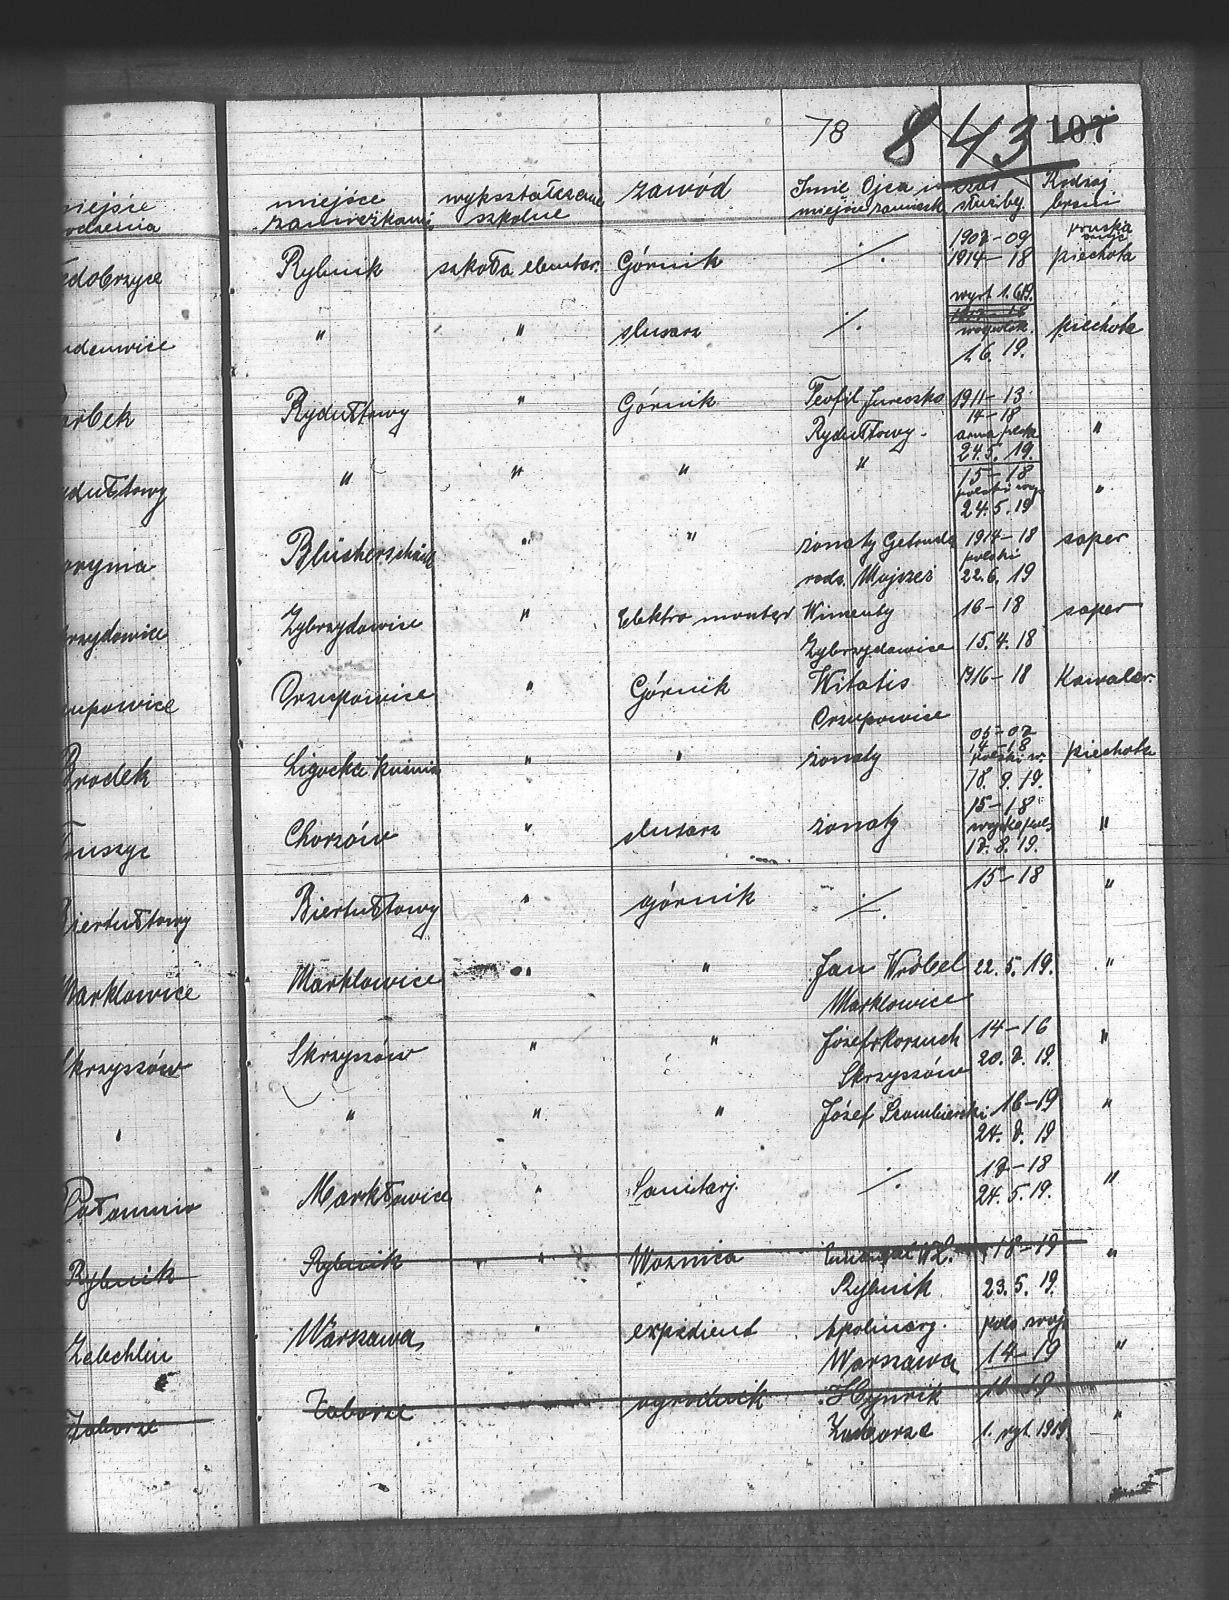 78 843 107
miejsce zamieszkania wykształcenie szkolne zawód Imię Ojca i miejsce zamieszk czas służby Rodzaj broni
Rybnik szkoła elementar. Górnik ·/· 1907-09 1914-18 pruska piechota
" " slusarz ·/· 1.6.19. piechota
Rydułtowy " Górnik Teofil Jureczko Rydułtowy. 1911-13 14-18 24.5.19. "
ydułtowy " " " " 15-18 24.5.19 "
Blücherschächt " " żonaty Getruda rodz. Mojsześ 1914-18 polski 22.6.19 saper
rzydowice Zybrzydowice " Elektro montęr Wincenty Zybrzydowice 16-18 15.4.18 saper
upowice Orzupowice " Górnik Witalis Orzupowice 1916-18 Kawaler.
Brodek Ligocka kuźnia " " żonaty 05-07 14-18 polski w. 18.9.19. piechota
Chorzów " slusarz żonaty 15-18 18.8.19. "
Biertułtowy Biertułtowy " górnik ·/· 15-18 "
Marklowice Marklowice " " Jan Wróbel Marklowice 22.5.19. "
Skrzyszów Skrzyszów " " Józef Korzuch Skrzyszów 14-16 20.8.19. "
" " " " Józef Szombierski 16-19 24.8.19 "
Marktowice " Sanitarj. ·/· 18-18 24.5.19. "
Rybnik Rybnik " Woznica Rybnik 18-19 23.5.19. "
Zelechlin Warszawa " expedient Apolinarj. Warszawa 14-19 "
Zaborze Zaborze ogrodnik Hynrik Zaborze 18-19 1. 1919. "